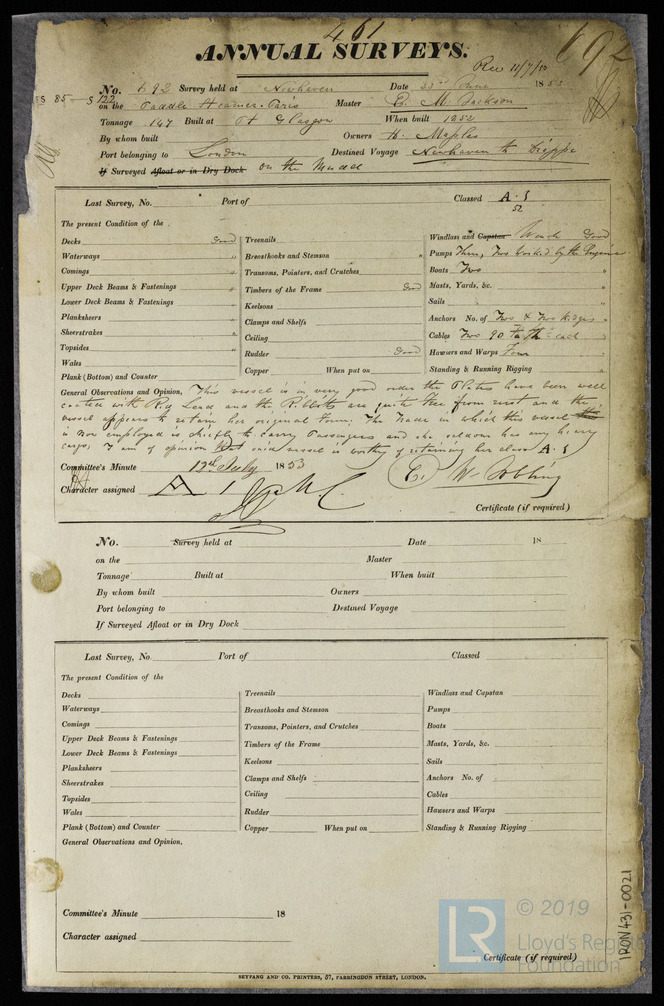 461
ANNUAL SURVEYS.
Rec 11/7/53
692
No. 692 Survey held at Newhaven Date June 1853
on the Paddle Steamer Paris Master C. M. Jackson
Tonnage 147 Built at Pt Glasgow When built 1852
By whom built Owners H. Maples
Port belonging to London Destined Voyage Newhaven to Dieppe
If Surveyed Afloat or in Dry Dock on the Mudd
Last Survey, No. Port of Classed A. 1
52
The present Condition of the
Decks Good
Waterways "
Comings "
Upper Deck Beams & Fastenings "
Lower Deck Beams & Fastenings
Planksheers "
Sheerstrakes "
Topsides "
Wales
Plank (Bottom) and Counter
Treenails
Breasthooks and Stemson "
Transoms, Pointers, and Crutches
Timbers of the Frame Good
Keelsons
Clamps and Shelfs
Ceiling
Rudder Good
Copper When put on
Windlass and Capstan Good
Pumps two worked by the Engine
Boats Two "
Masts, Yards, &c. "
Sails "
Anchors No. of Two & Two Kedges "
Cables Two 90 each
Hawsers and Warps Four
Standing & Running Rigging "
General Observations and Opinion, This vessel is in very good order the Plates have been well
coated with Red Lead and the Ribbits are quite free from rust and the
vessel appears to retain her original form; The trade in which this vessel
is now employed is chiefly to carry Passengers and she seldom has any heavy
cargo, I am of opinion that said vessel is worthy of retaining her class A. 1
Committee's Minute 12th July 1853
Character assigned A 1
Certificate (if required)
No. Survey held at Date 18
on the Master
Tonnage Built at When built
By whom built Owners
Port belonging to Destined Voyage
If Surveyed Afloat or in Dry Dock
Last Survey, No. Port of Classed
The present Condition of the
Decks
Waterways
Comings
Upper Deck Beams & Fastenings
Lower Deck Beams & Fastenings
Planksheers
Sheerstrakes
Topsides
Wales
Plank (Bottom) and Counter
Treenails
Breasthooks and Stemson
Transoms, Pointers, and Crutches
Timbers of the Frame
Keelsons
Clamps and Shelfs
Ceiling
Rudder
Copper When put on
Windlass and Capstan
Pumps
Boats
Masts, Yards, &c.
Sails
Anchors No. of
Cables
Hawsers and Warps
Standing & Running Rigging
General Observations and Opinion,
Committee's Minute 18
Character assigned
Certificate (if required)
SEYFANG AND CO. PRINTERS, 57, FARRINGDON STREET, LONDON.
IRON431-0021
LR
© 2019
Lloyd's Register
Foundation